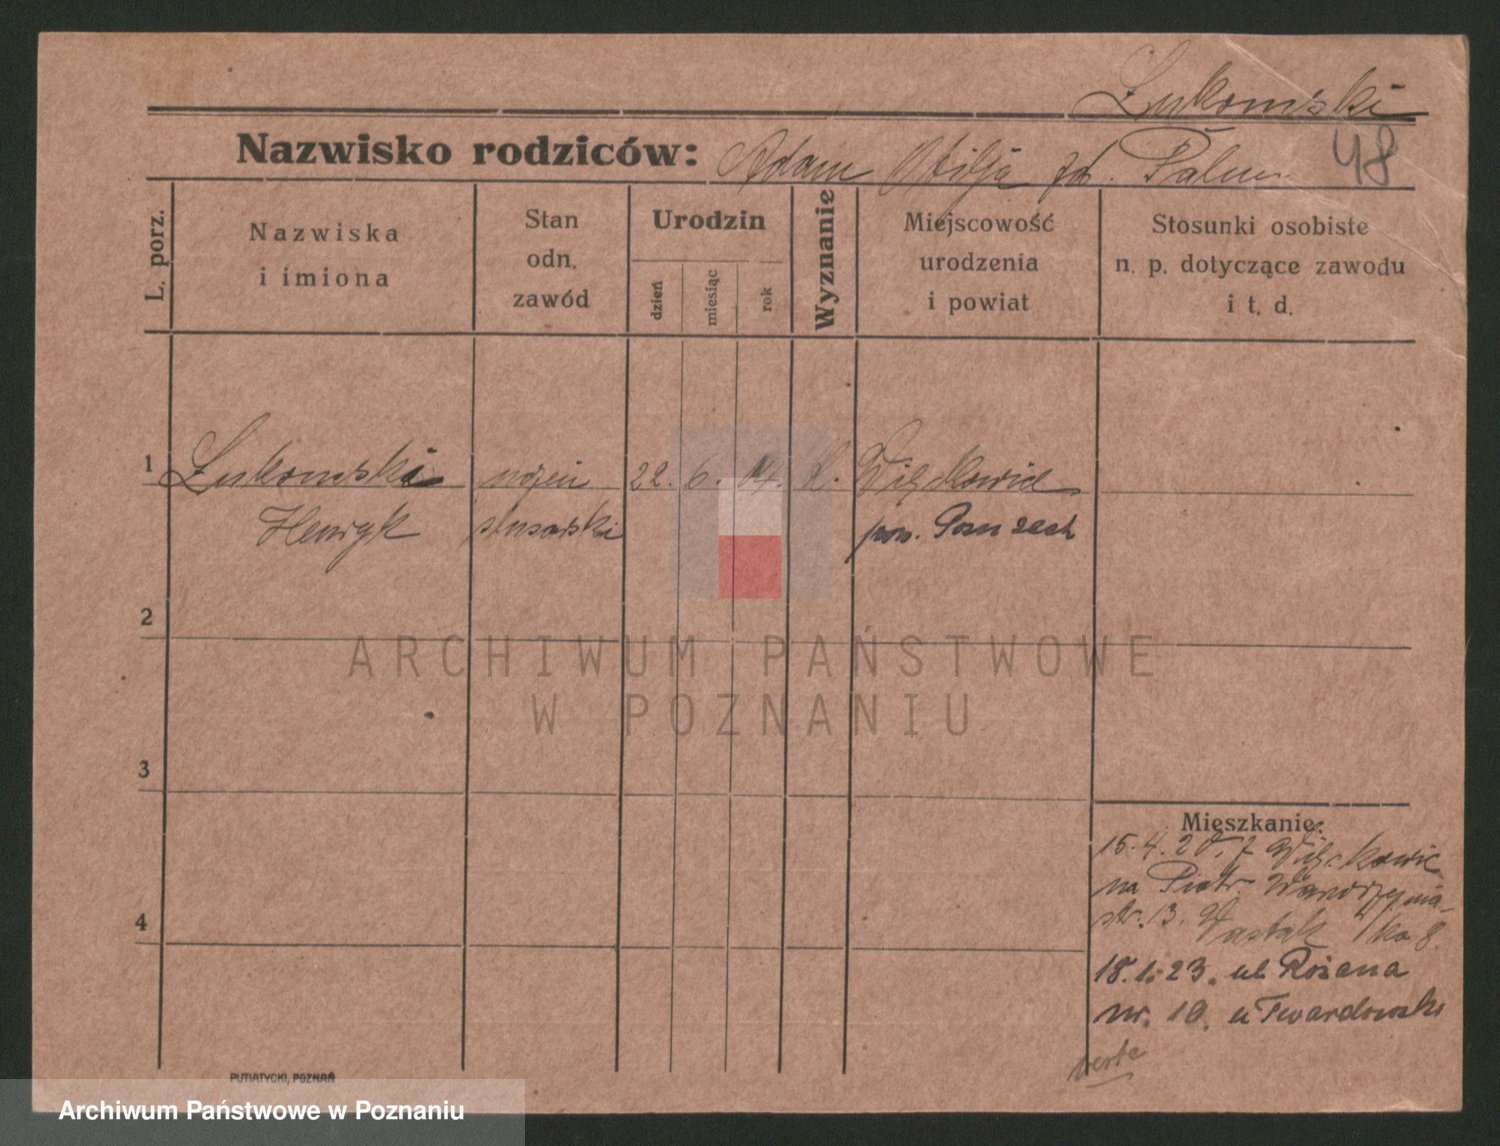 Łukomski
48
Nazwisko rodziców: Adam Otilja
L. porz.
Nazwiska
i imiona
Stan
odn.
zawód
Urodzin
dzień
miesiąc
rok
Wyznanie
Miejscowość
urodzenia
i powiat
Stosunki osobiste
n. p. dotyczące zawodu
i t. d.
1 Łukomski uczeń 22. 6. 04. k. Więckowice
Henryk ślusarski pow. Pozn zach
2
3
4
ARCHIWUM PAŃSTWOWE
W POZNANIU
Mieszkanie:
15. 4. 20. z Więckowic
na Piotr. Wawrzynia-
str. 13.
18. 1. 23. ul Różana
nr. 10. u Twardowski
verte
PUTIATYCKI, POZNAŃ
Archiwum Państwowe w Poznaniu